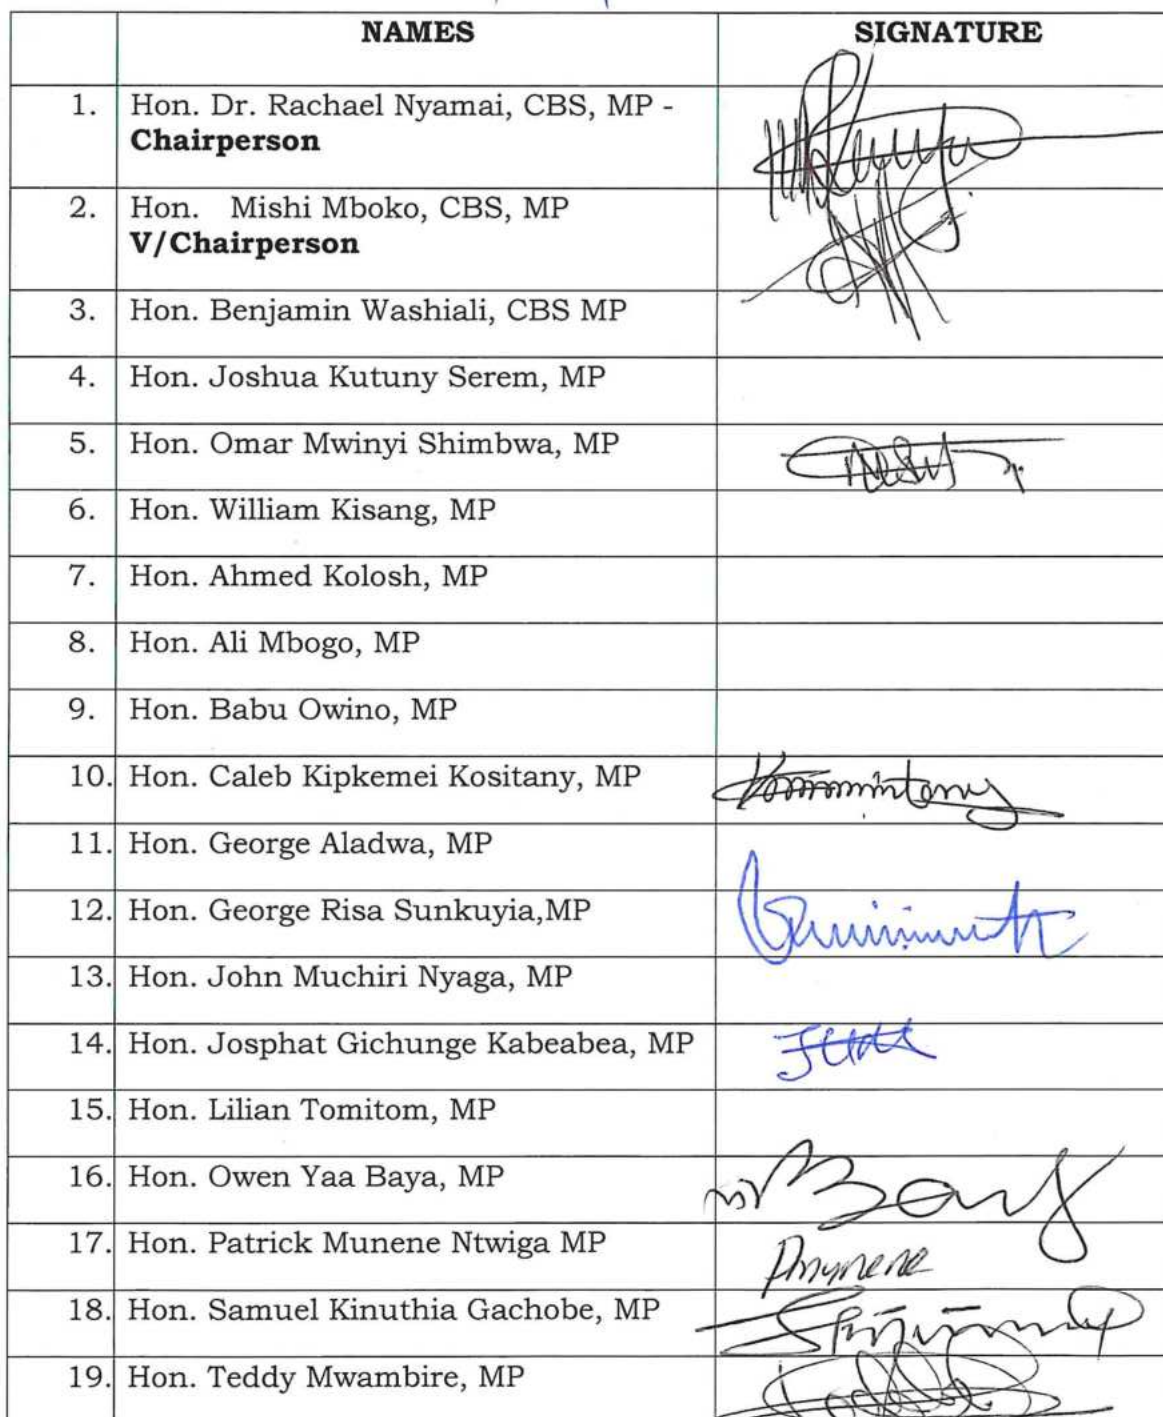 NAMES SIGNATURE
1. Hon. Dr. Rachael Nyamai, CBS, MP -
Chairperson
2. Hon. Mishi Mboko, CBS, MP
V/Chairperson
3. Hon. Benjamin Washiali, CBS MP
4. Hon. Joshua Kutuny Serem, MP
5. Hon. Omar Mwinyi Shimbwa, MP
6. Hon. William Kisang, MP
7. Hon. Ahmed Kolosh, MP
8. Hon. Ali Mbogo, MP
9. Hon. Babu Owino, MP
10. Hon. Caleb Kipkemei Kositany, MP
11. Hon. George Aladwa, MP
12. Hon. George Risa Sunkuyia,MP
13. Hon. John Muchiri Nyaga, MP
14. Hon. Josphat Gichunge Kabeabea, MP
15. Hon. Lilian Tomitom, MP
16. Hon. Owen Yaa Baya, MP
17. Hon. Patrick Munene Ntwiga MP
18. Hon. Samuel Kinuthia Gachobe, MP
19. Hon. Teddy Mwambire, MP